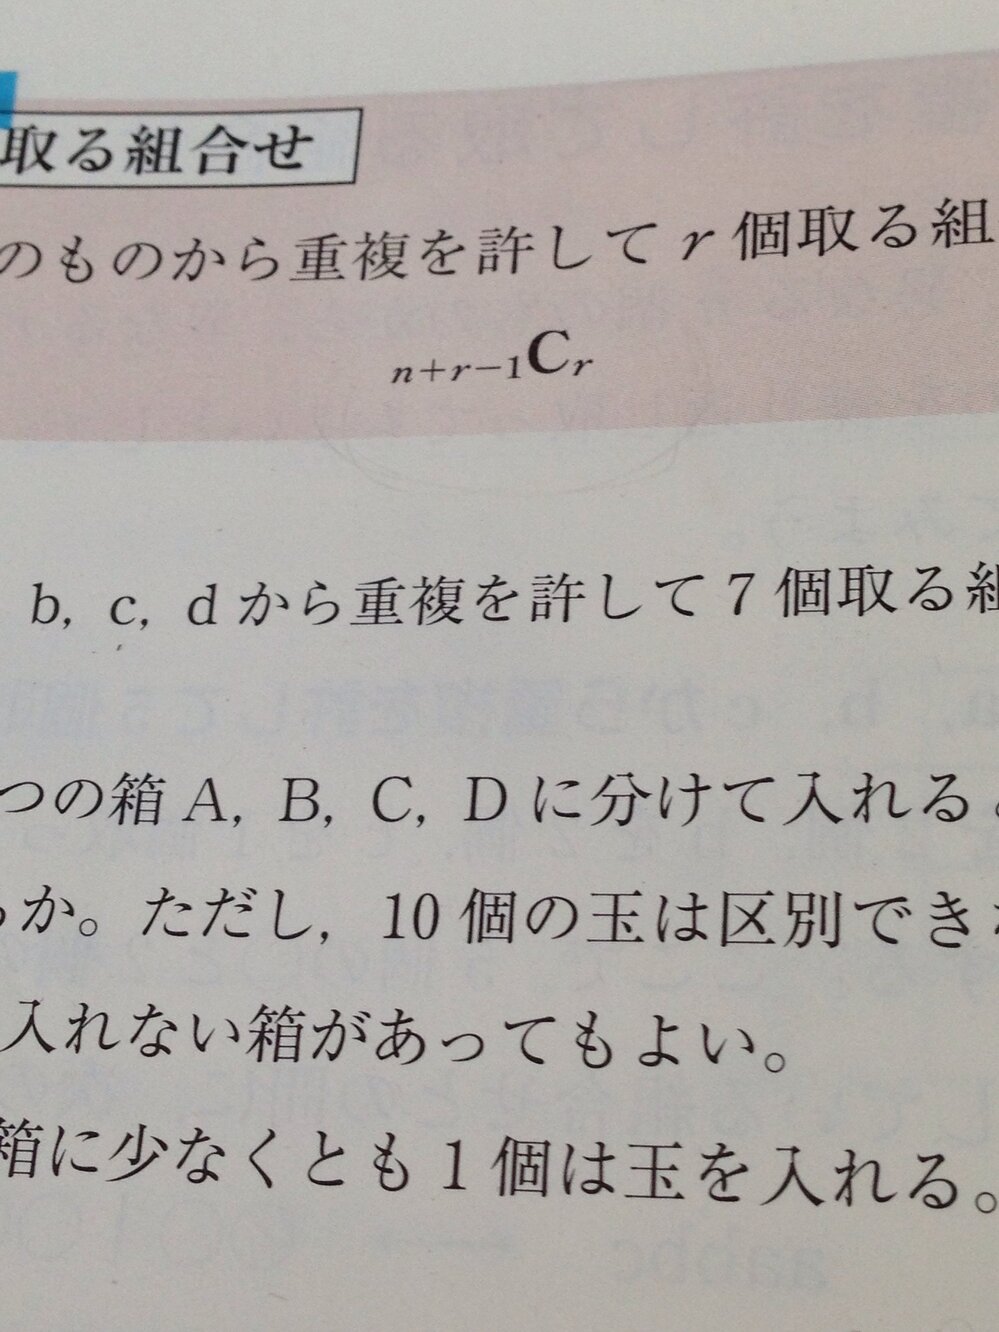 取る組合せ
のものから重複を許してr個取る組
n+r−1Cr
b, c, dから重複を許して7個取る組
つの箱A, B, C, Dに分けて入れる
か。ただし, 10個の玉は区別でき
入れない箱があってもよい。
箱に少なくとも1個は玉を入れる。